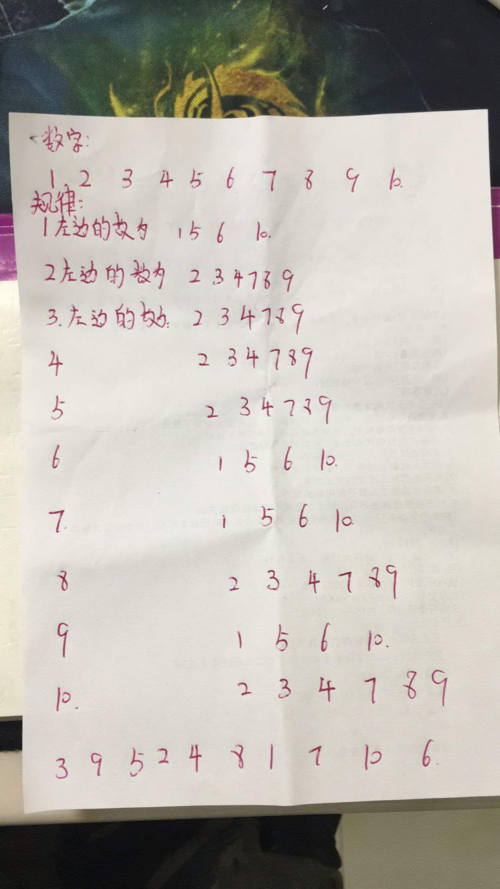 数字:
1 2 3 4 5 6 7 8 9 10.
规律:
1左边的数为 1 5 6 10.
2左边的数为 2 3 4 7 8 9
3.左边的数为: 2 3 4 7 8 9
4 2 3 4 7 8 9
5 2 3 4 7 8 9
6 1 5 6 10.
7. 1 5 6 10
8 2 3 4 7 8 9
9 1 5 6 10.
10. 2 3 4 7 8 9
3 9 5 2 4 8 1 7 10 6.